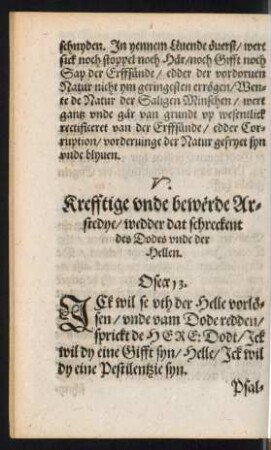 schnyden. In yennem Leuende öuerst/ wert
sick noch stoppel noch Här/noch Gifft noch
Sap der Erffsünde/ edder der vordoruen
Natur nicht ym geringesten erögen/Wen-
te de Natur der Saligen Minschen/ wert
gantz vnde gär van grundt vp wesentlick
rectificeret van der Erffsünde/ edder Cor-
ruption/ vorderuinge der Natur gefryet syn
vnde blyuen.
V.
Krefftige vnde bewerde Ar-
stedye/ wedder dat schreckent
des Dodes vnde der
Hellen.
Oseæ 13.
JCk wil se vth der Helle vorlö-
sen/ vnde vam Dode redden/
sprickt de HERE: Dodt/ Jck
wil dy eine Gifft syn/ Helle/ Jck wil
dy eine Pestilentzie syn.
Psal-